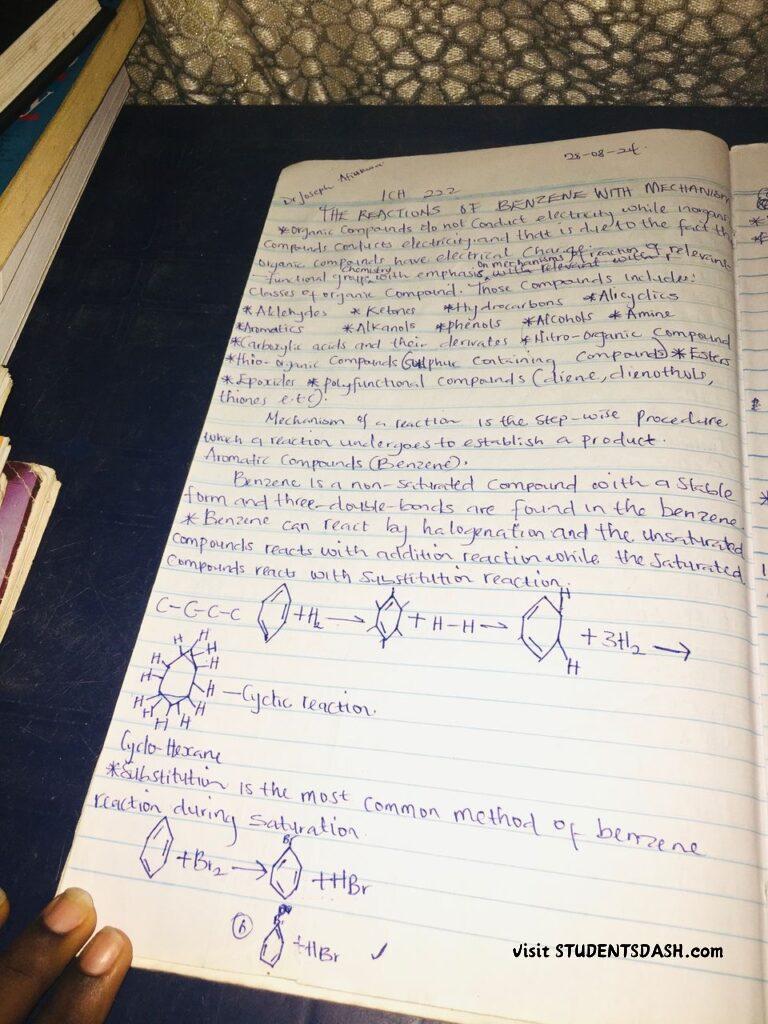 28-08-24.
Dr Joseph
ICH 222
THE REACTIONS OF BENZENE WITH MECHANISM
*Organic Compounds do not Conduct electricity while inorganic
Compounds conducts electricity and that is due to the fact th
Organic compounds have electrical Charge reaction of relevant
Chemistry on mechanisms
functional groups with emphasis with relevant
Classes of organic Compound. Those Compounds includes:
*Aldehydes *Ketones *Hydrocarbons *Alicyclics
*Aromatics *Alkanols *phenols *Alcohols *Amine
*Carboxylic acids and their derivates *Nitro-organic Compound
*thio-organic Compounds (Sulphur Containing Compounds) *Esters
*Epoxides *polyfunctional compounds (diene, dienothols,
thiones e.t.c).
Mechanism of a reaction is the step-wise procedure
which a reaction undergoes to establish a product.
Aromatic Compounds (Benzene).
Benzene is a non-saturated Compound with a Stable
form and three-double-bonds are found in the benzene.
*Benzene can react by halogenation and the unsaturated
compounds reacts with addition reaction while the saturated
Compounds reacts with Substitution reaction.
C-C-C-C +H2 → + H-H → H H +3H2 →
H H H H H H H H H H H —Cyclic reaction.
Cyclo-Hexane
*Substitution is the most common method of benzene
reaction during saturation.
+Br2 → Br +HBr
+HBr ✓
visit STUDENTSDASH.com